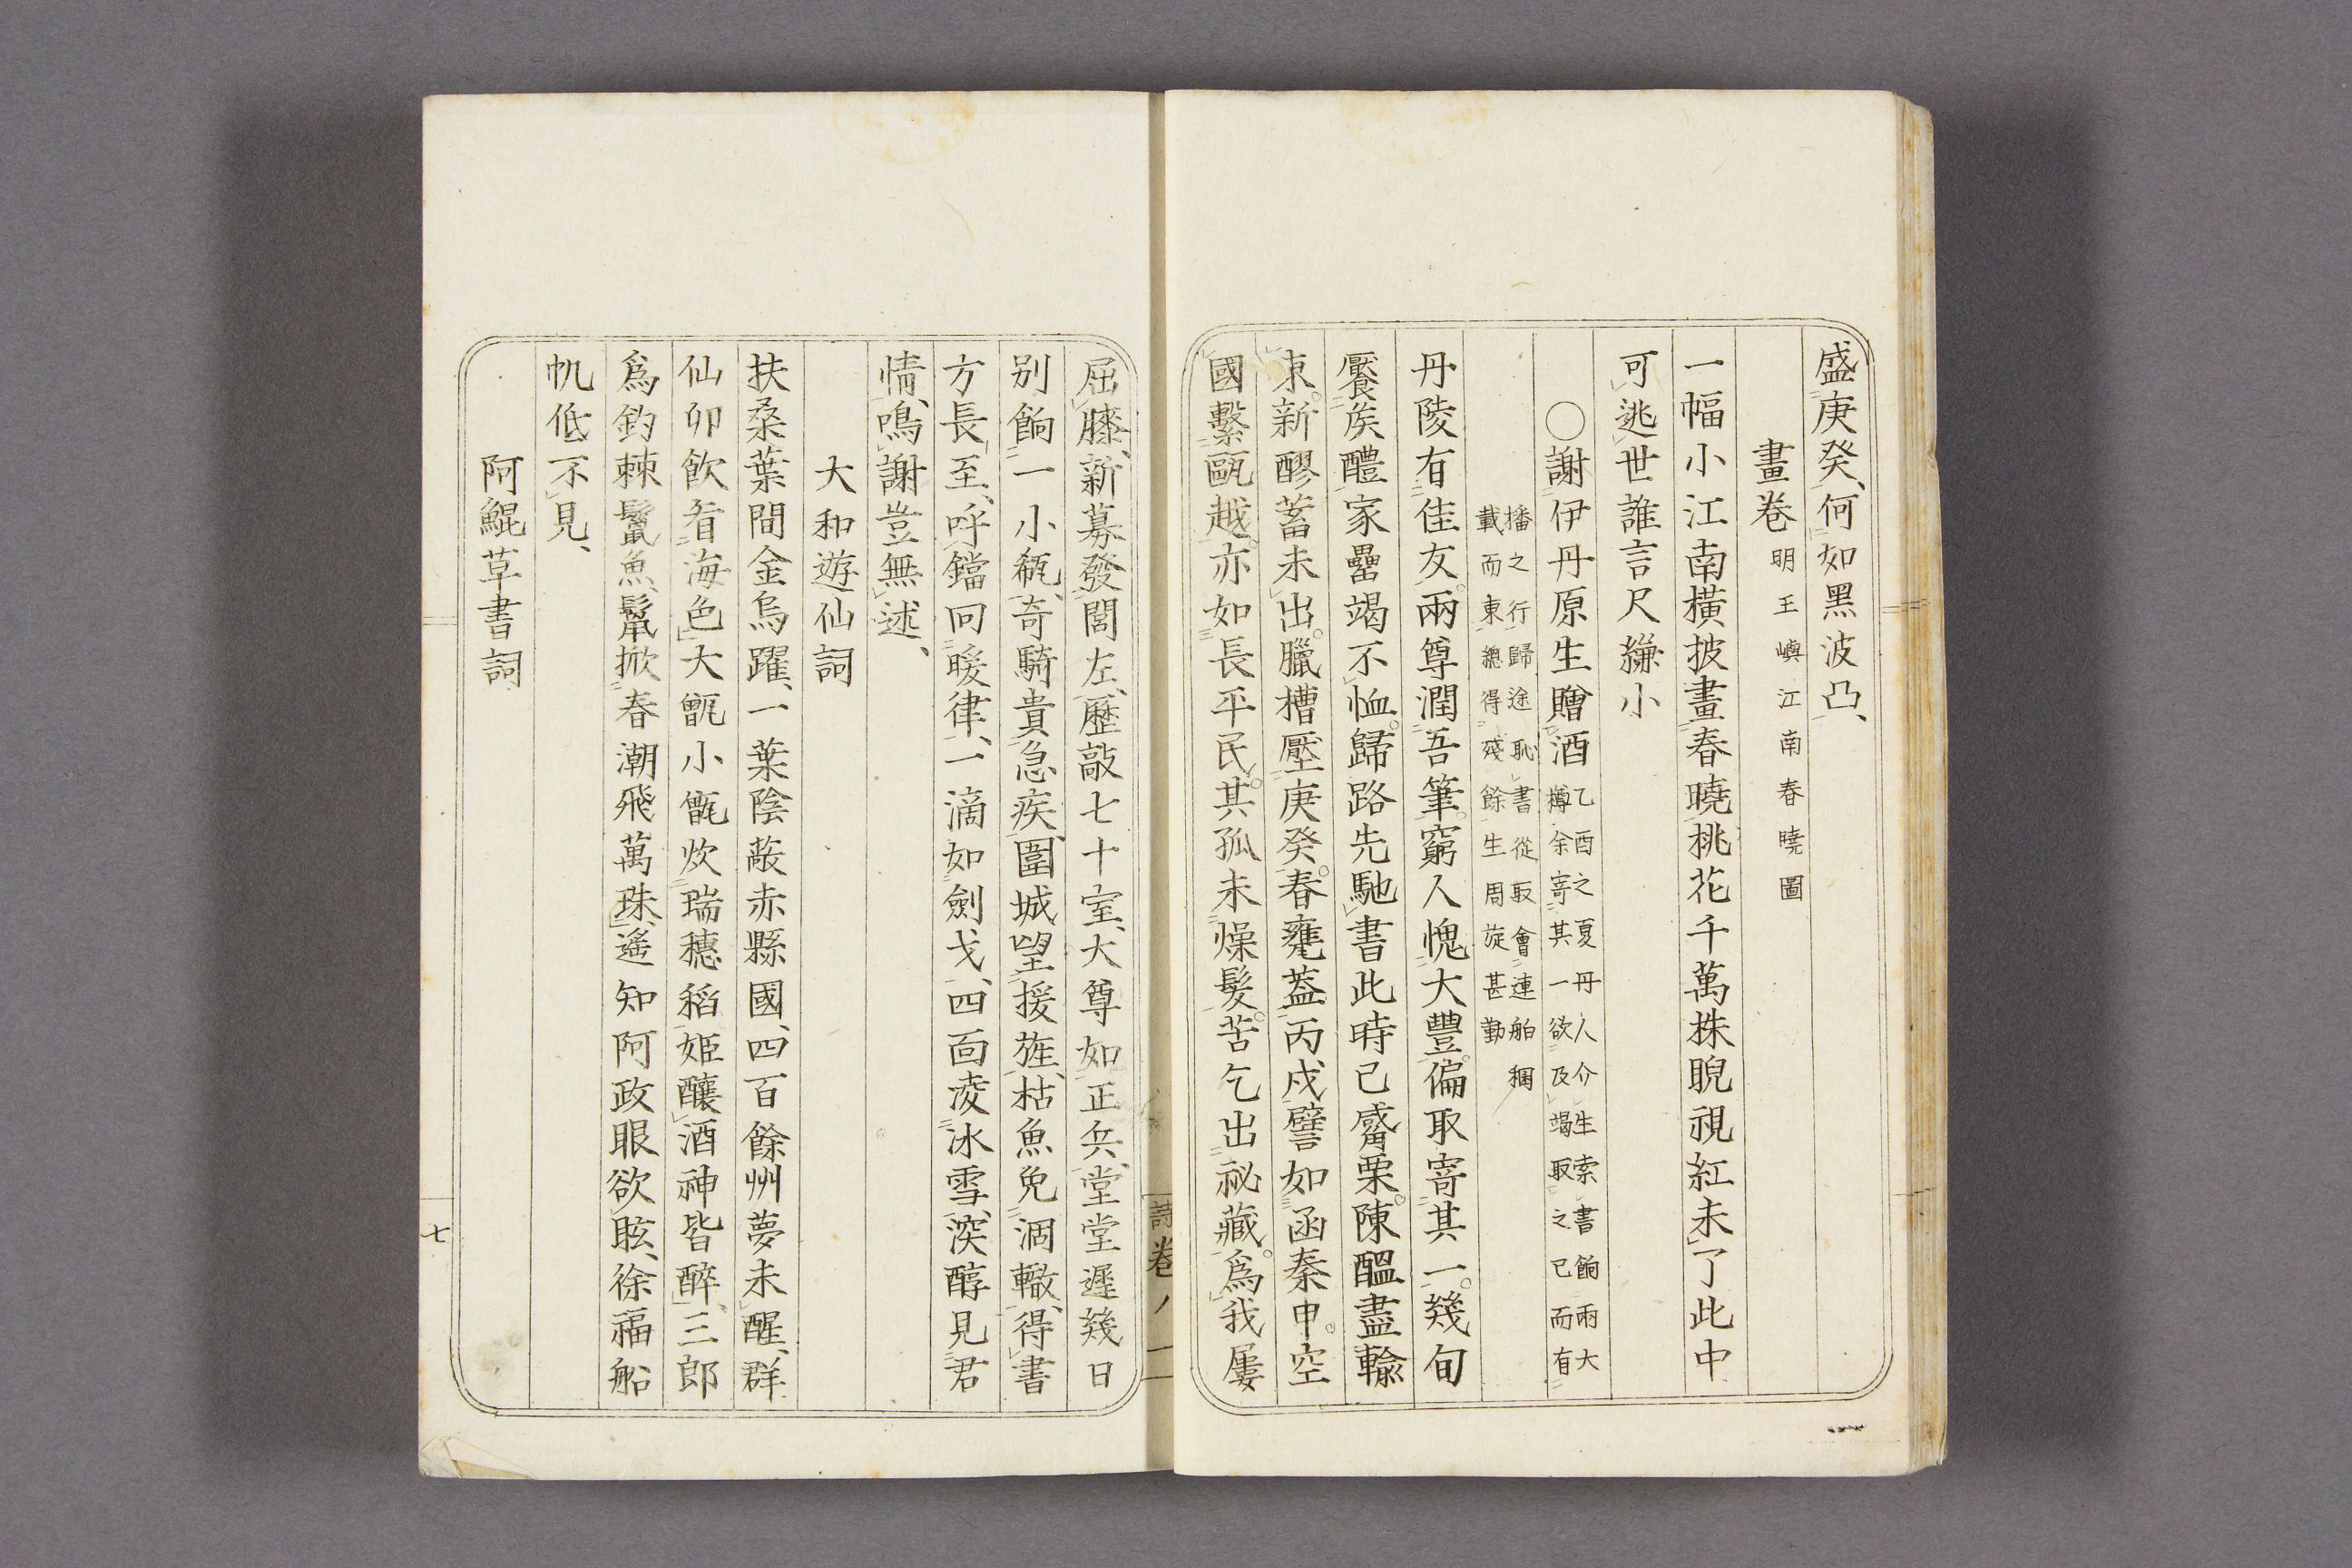 盛庚癸、何如黑波凸、
畫卷 明王嶼江南春曉圖
一幅小江南橫披畫春曉桃花千萬株睨視紅未了此中
可逃世誰言尺縑小
○謝伊丹原生贈酒 乙酉之夏丹人介生索書餉兩大
樽余寄其一欲及竭取之已而有
播之行歸途恥書從取會連舶稛
載而東總得殘餘生周旋甚勤
丹陵有佳友。兩尊潤吾筆。窮人愧大豐。偏取寄其一。幾旬
饜矦醴家罍竭不恤。歸路先馳書此時已觱栗。陳醞盡輸
東。新醪蓄未出。臘槽壓庚癸。春甕蓋丙戌。譬如函秦申。空
國繫甌越。亦如長平民。其孤未燥髮。苦乞出祕藏。爲我屢
屈膝、新募發閭左、歷敲七十室、大尊如正兵、堂堂遲幾日
別餉一小瓻、奇騎貴急疾、圍城望援旌、枯魚免涸轍、得書
方長至、呼鐺回暖律、一滴如劍戈、四面凌冰雪、深醇見君
情、鳴謝豈無述、
大和遊仙詞
扶桑葉間金烏躍、一葉陰蔽赤縣國、四百餘州夢未醒、群
仙卯飲看海色、大甑小甑炊瑞穗稻姫釀酒神皆醉、三郎
爲釣棘鬣魚、鬣掀春潮飛萬珠、遙知阿政眼欲眩、徐福船
帆低不見、
阿鯤草書詞
詩卷八
七